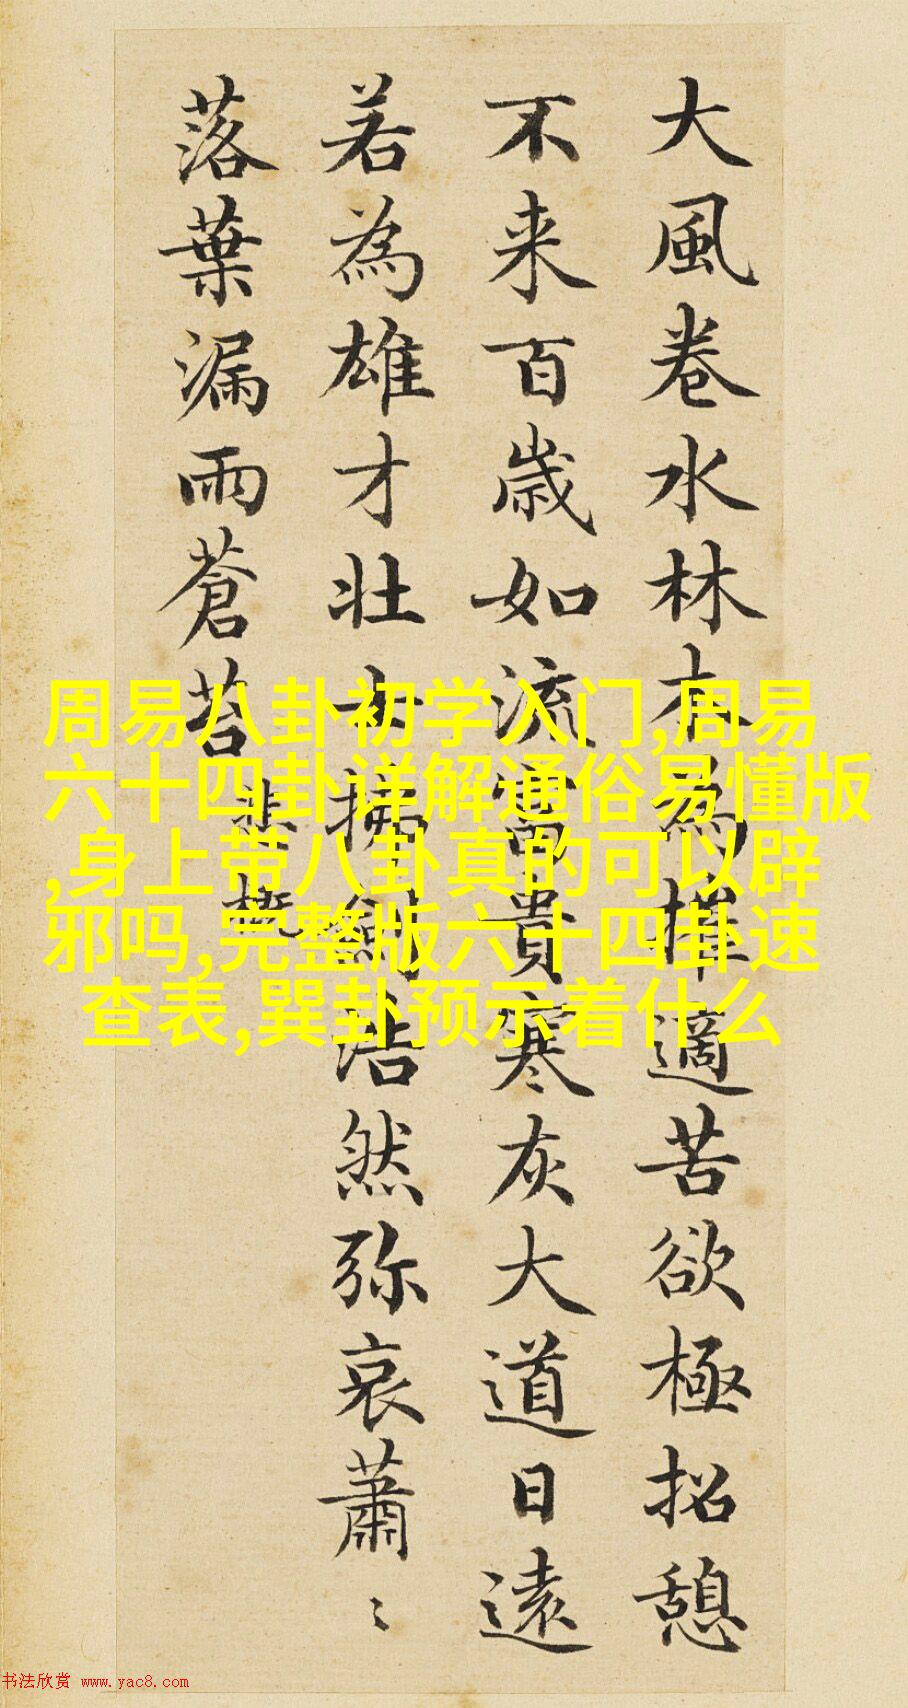 大風卷水林木為摧適苦欲極招憩
不来百歳如流富貴寒灰大道日遠
若為雄才壮士拂劍浩然弥哀蕭〻
落葉漏雨蒼苔
悲慨
周易八卦初学入门,周易
六十四卦详解通俗易懂版
,身上带八卦真的可以辟
邪吗,完整版六十四卦速
查表,巽卦预示着什么
书法欣赏 www.yac8.com